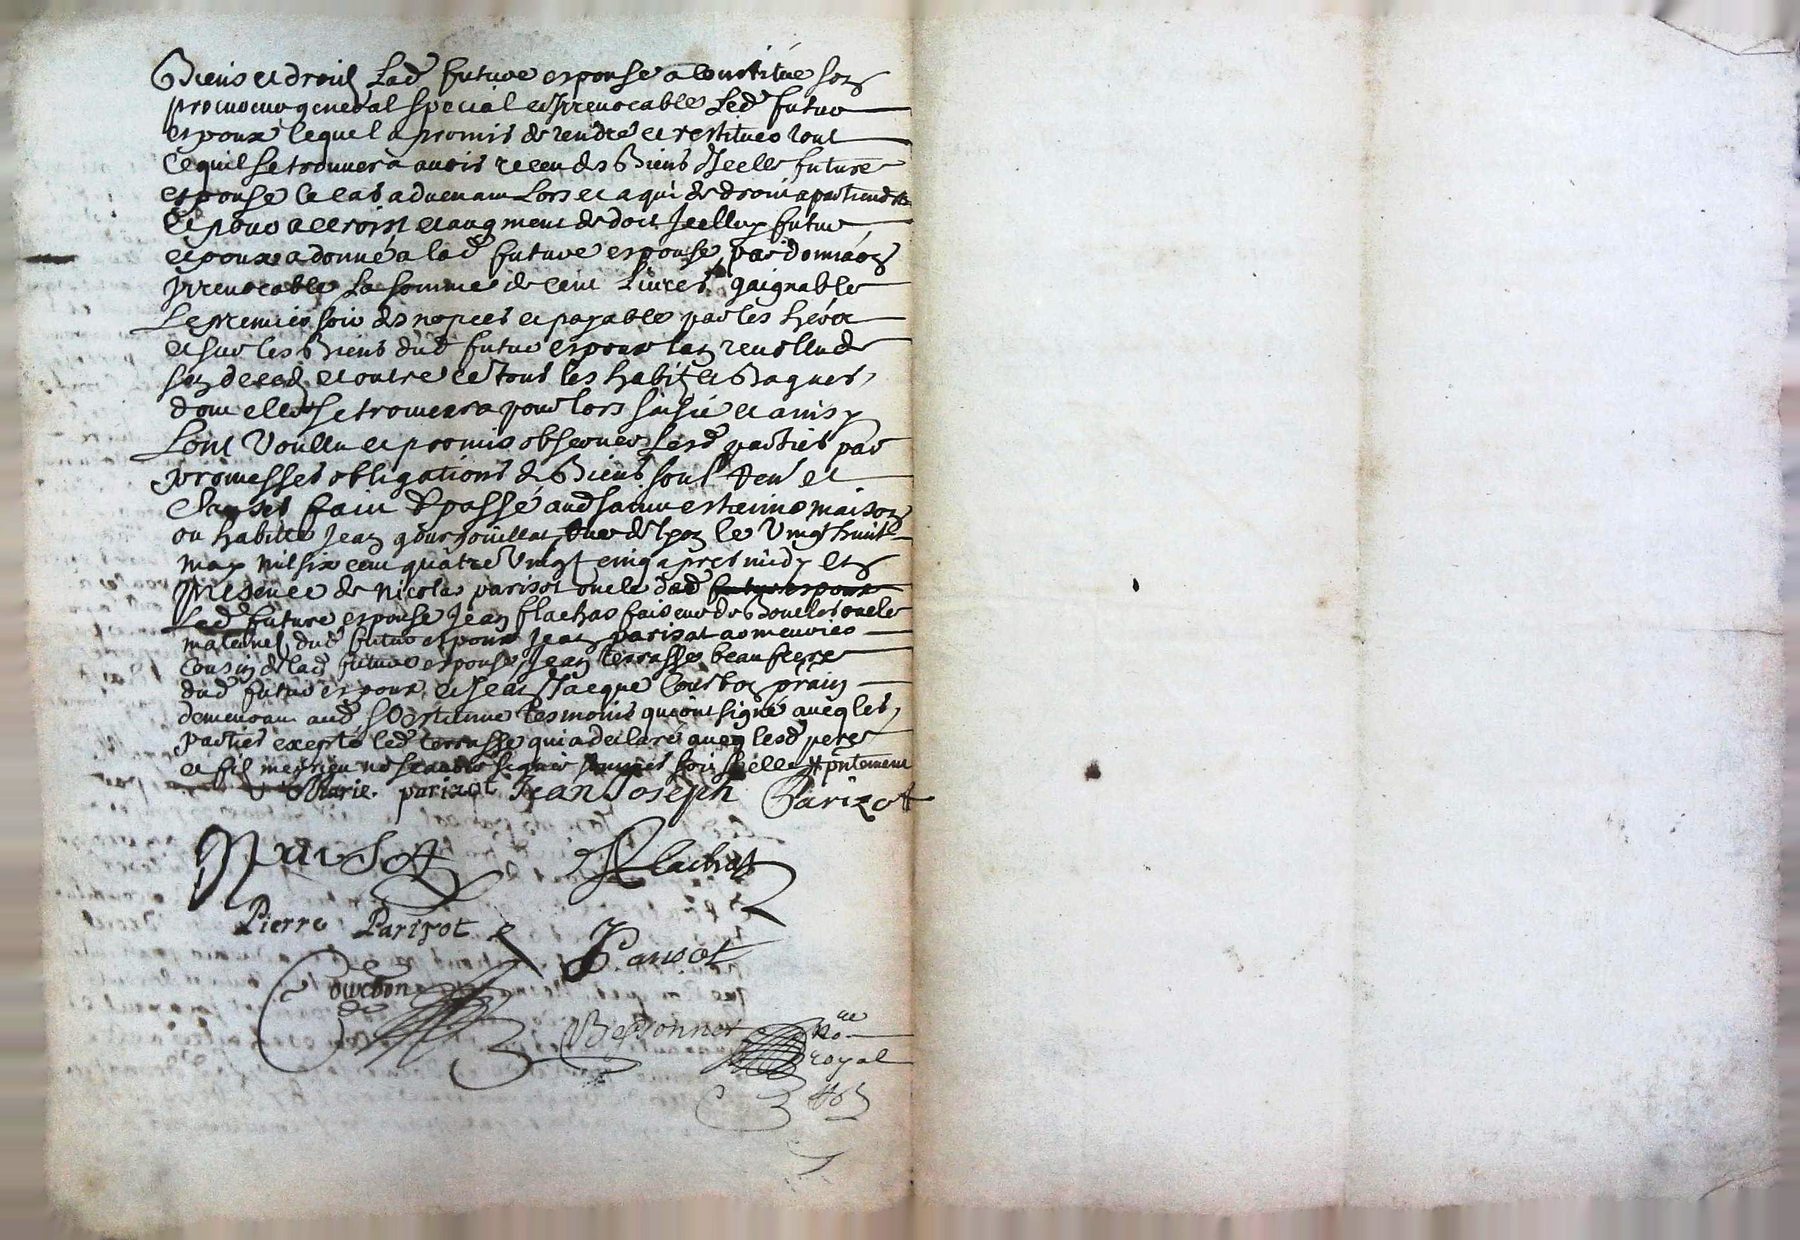 Biens et droicts Lad future espouse a constitué son
procureur general special et Irrevocable Led futur
espoux lequel a promis de rendre et restituer tout
ce quil se trouvera avoir receu des Biens d'Icelle future
espouse le cas advenant Lors et a qui de droit apartiendra
Et pour accroist et augment de dot Icelluy futur
espoux a donné a lad future espouse par donnaon
Irrevocable La somme de cent Livres gaignable
Le premier soir des nopces et payable par les her
et sur les Biens dud futur espoux lan revollu de
son deced et outre ce tous les habits et Bagues
dont elle se trouvera pour lors saisie et ainsy
Lont Voullu et promis observer lesd parties par
promesses obligations de Biens soub Ren et
Clauses fait et passé aud saint estienne maison
ou habitte Jean rue de lyon le Vingt huit
may mil six cent quatre Vingt cinq apres midy Et en
presence de nicolas parisot oncle dud futur espoux
Led future espouse Jean flachas faiseur de Boucles oncle
maternel dud futur espoux Jean parisot armeurier
cousin de lad future espouse Jean terrasse beaufrere
dud futur espoux et Jean Jacque Courbon prain
demeurant aud St Estienne tesmoins qui ont signé aveq les
parties excepté led terrasse qui a declaré aveq lesd pere
et fils ne scavoir signer
Marie parizot Jean Joseph Parizot
N Parisot Flachat
Pierre Parizot J Parisot
Courbon
Bessonnet No re
royal